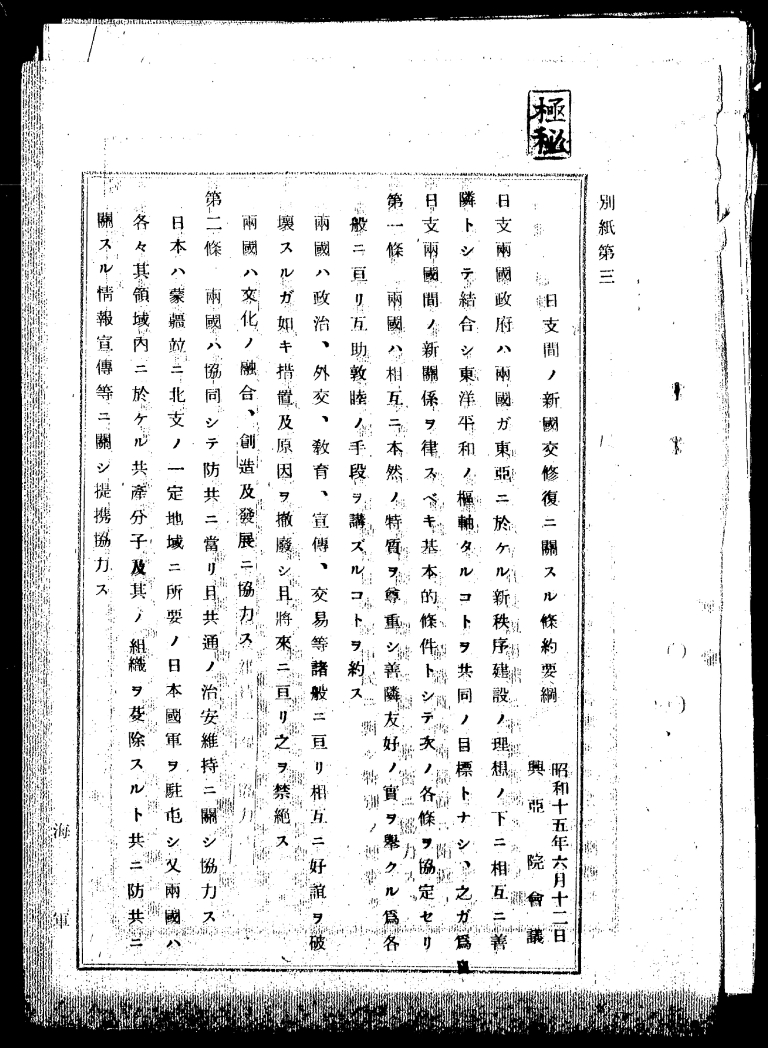 極秘
別紙第三
日支間ノ新國交修復ニ關スル條約要綱
昭和十五年六月十二日
興亞院會議
日支兩國政府ハ兩國ガ東亞ニ於ケル新秩序建設ノ理想ノ下ニ相互ニ善
隣トシテ結合シ東洋平和ノ樞軸タルコトヲ共同ノ目標トナシ、之ガ爲
日支兩國間ノ新關係ヲ律スベキ基本的條件トシテ次ノ各條ヲ協定セリ
第一條 兩國ハ相互ニ本然ノ特質ヲ尊重シ善隣友好ノ實ヲ擧クル爲各
般ニ亘リ互助敦睦ノ手段ヲ講ズルコトヲ約ス
兩國ハ政治、外交、敎育、宣傳、交易等諸般ニ亘リ相互ニ好誼ヲ破
壞スルガ如キ措置及原因ヲ撤廢シ且將來ニ亘リ之ヲ禁絶ス
兩國ハ文化ノ融合、創造及發展ニ協力ス
第二條 兩國ハ協同シテ防共ニ當リ且共通ノ治安維持ニ關シ協力ス
日本ハ蒙疆竝ニ北支ノ一定地域ニ所要ノ日本國軍ヲ駐屯シ又兩國ハ
各々其領域內ニ於ケル共產分子及其ノ組織ヲ芟除スルト共ニ防共ニ
關スル情報宣傳等ニ關シ提携協力ス
海軍